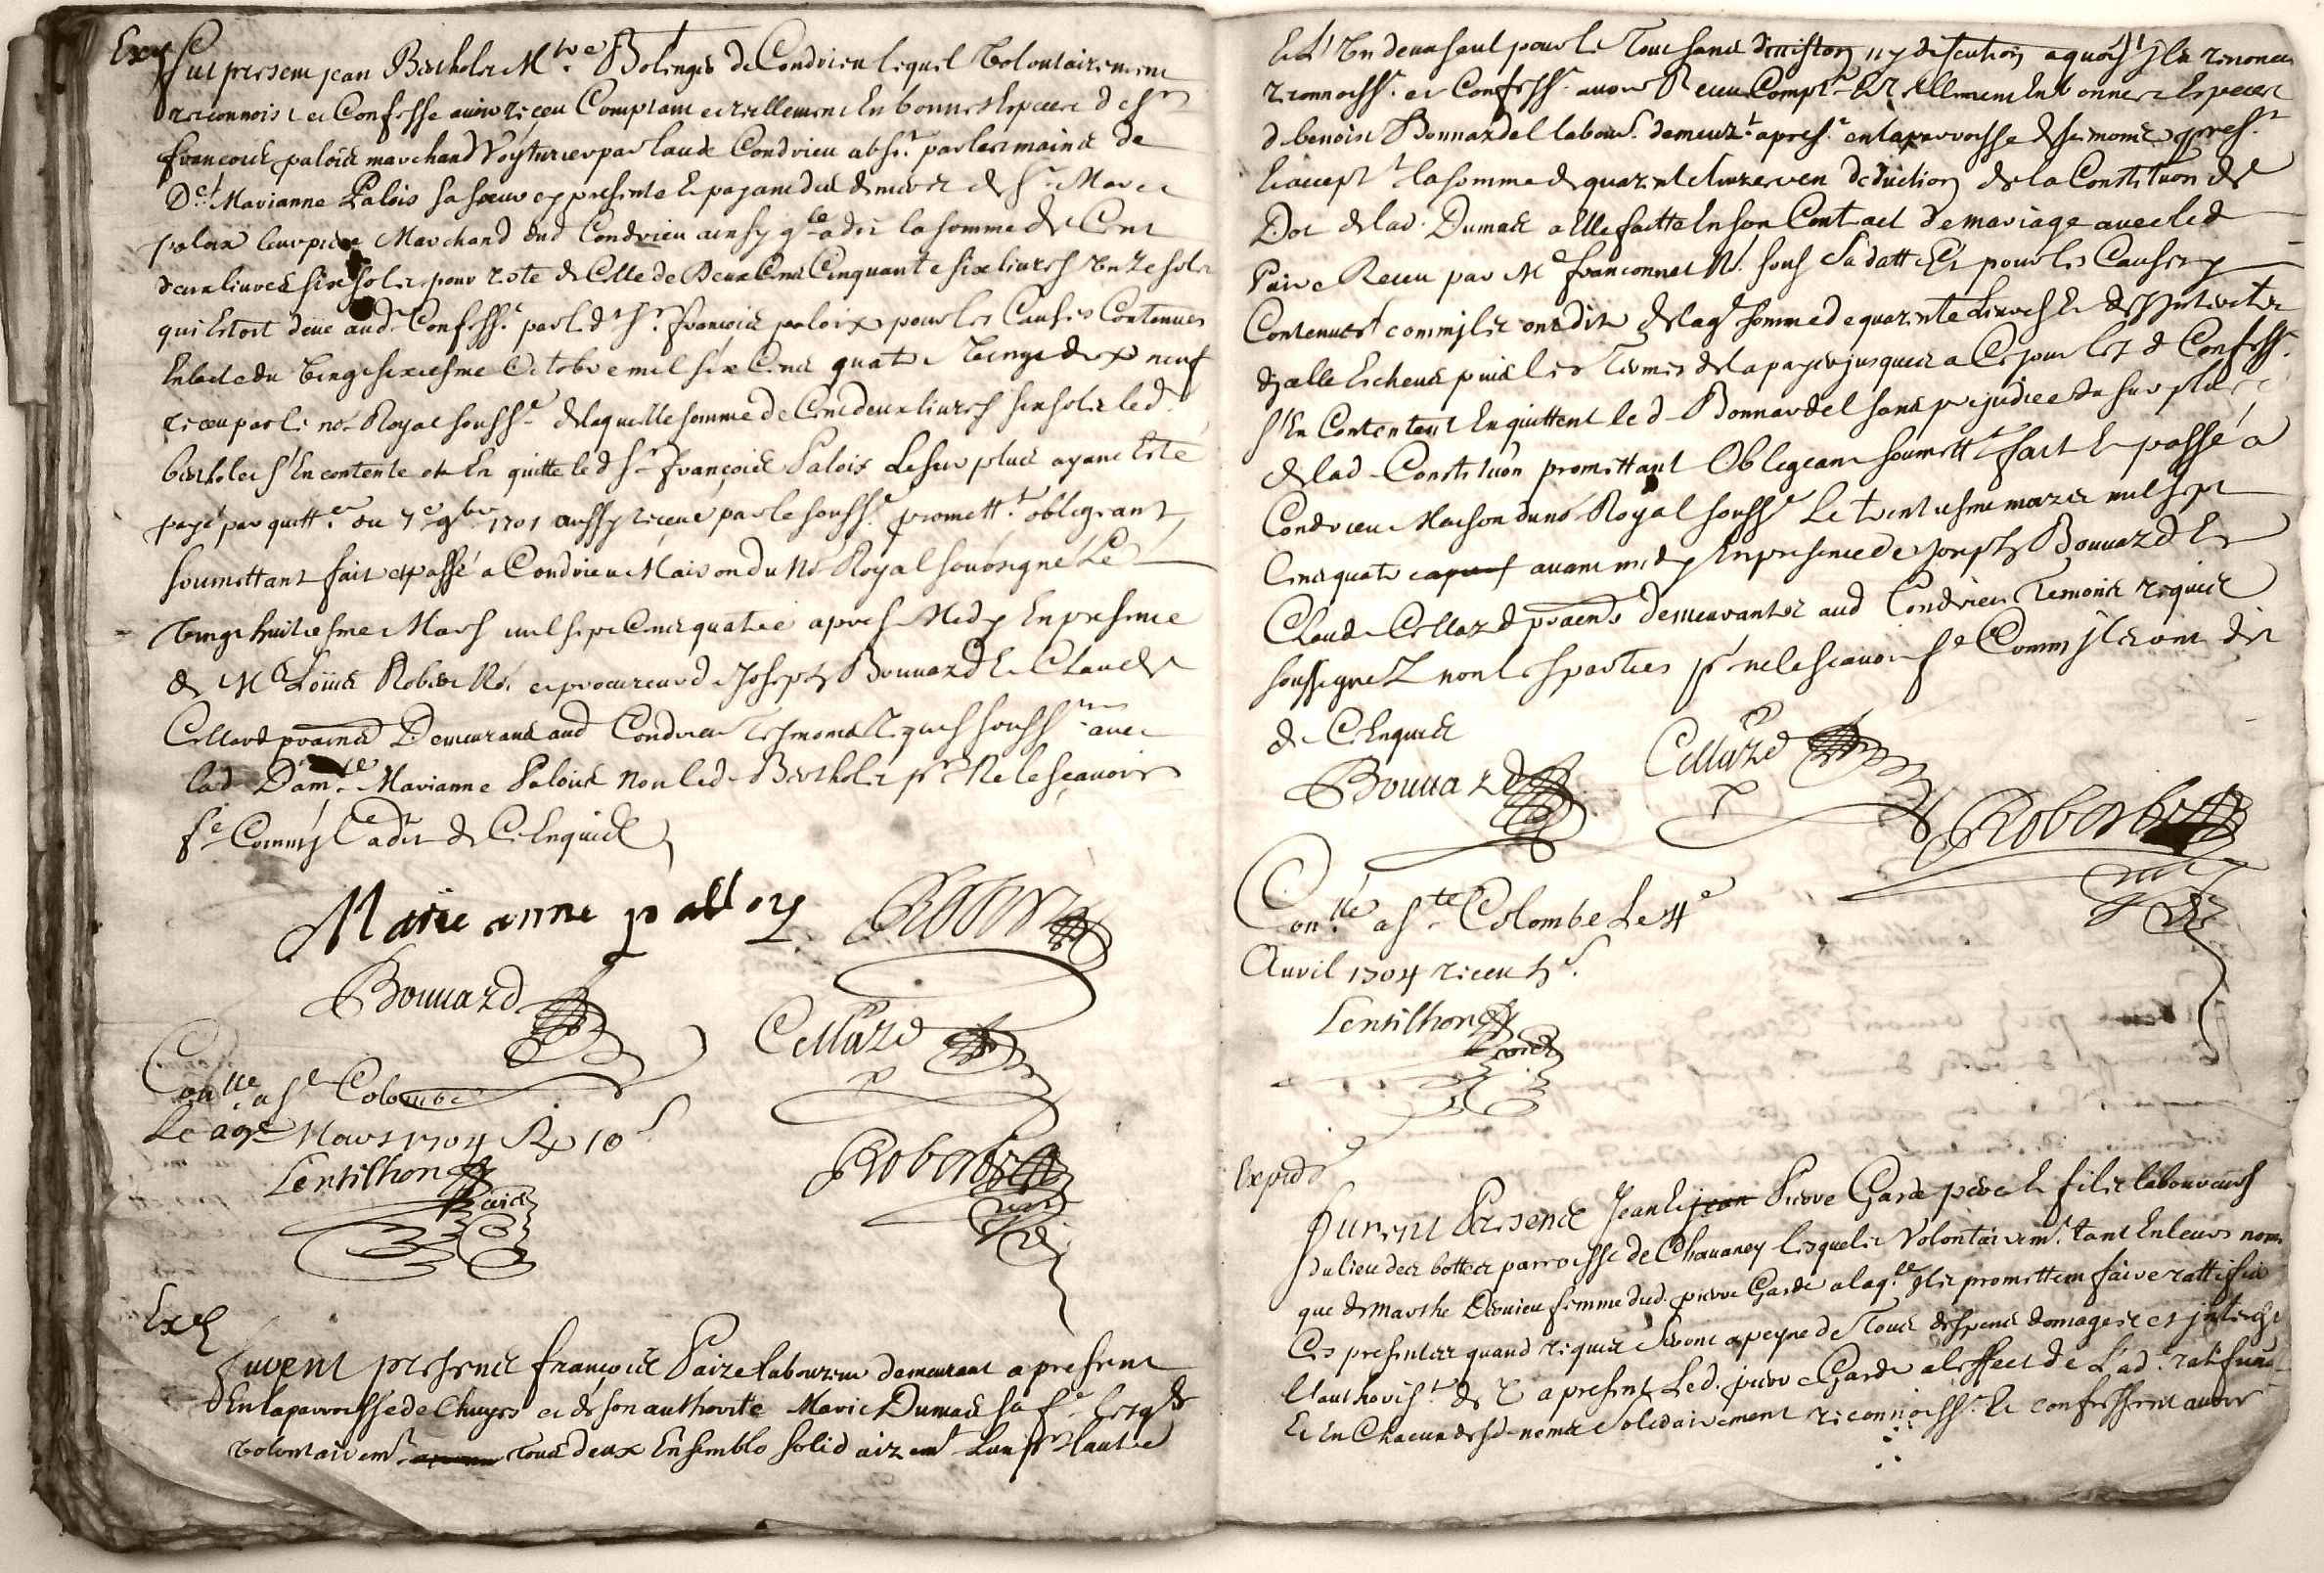 Exp
Fut present jean Bertholet M.tre Bolenger de Condrieu lequel volontairement
reconnoist et Confesse avoir receu Comptant et reellement En bonnes Especes de Sr
françois palois marchand Voyturier par laud Condrieu abst. par les mains de
De.lle Marianne Palois sa sœur cy presente Et payant des deniers de Sr. Marc
palois leur pere Marchand dud Condrieu ainsy q.le a dit la somme de Cent
deux livres six sols pour reste de Celle de Deux Cent Cinquante six livres unze sols
qui Estoit deüe aud. Confess.t par led. Sr. françois palois pour les Causes Contenues
En lacte du vingt sixiesme Octobre mil six Cent quatre vingt dix neuf
receu par le no.re Royal souss.é de laquelle somme de Cent deux livres six sols led.
berthollet s'En contente et En quitte led Sr françois Palois Le surplus ayant Esté
payé par quitt.ce du 7e 9bre 1701 aussy receue par le souss.é promett.t obligeant
soumettant fait et passé a Condrieu Maison du No.re Royal soubsigné Le
vingt huitiesme Mars mil sept Cent quatre apres Midy En presence
de Me Loüis Robert No.re et procureur de Joseph Bouuard Et Claude
Cellard praticiens Demeurans aud Condrieu Tesmoins Requis souss.nés avec
lad Dam.lle Marianne Palois Non led. Berthole pr. Ne le sçavoir
fe Comm' Il a dit de Ce Enquis
Marie anne palloy Robert
Bouuard
Cellard
Con.llé a Se Colombe
Le 29e Mars 1704 Rx 10 s
Lentilhon
Robert
Exp
Furent presents françois Paire laboureur demeurant a present
En la parroisse de Chuyes et de son authorité Marie Dumas sa fe. lesq.ls
volontairem.t tous deux Ensemble solidairem.t Lun pr. Lautre
Et Un deux seul pour le Tout sans division ny discution a quoy Ils renoncent
reconnoiss.t et Confess.t avoir Receu Compt.t Et reellement En bonnes Especes
de benoit Bonnardel labour.r demeur.t a pres.t en la parroisse de st. romis pres.t
Et accept.t la somme de quarante livres en deduction de la Constituon de
Dot de lad. Dumas a Elle faitte En son Contract de mariage avec led
Paire Receu par Me françonnet No.re sous sa datte Et pour les Causes y
Contenues comm' Ils ont dit de laq.le somme de quarente Livres Et des Interets
dicelle Escheus puis les Termes de la payer jusques a Ce jour les d Confess.t
s'En Contentent En quittent led Bonnardel sans prejudice du surplus
de lad Constituon promettant Obligeant soumett.t fait Et passé a
Condrieu Maison du no.re Royal souss.é Le trentiesme mars mil sept
Cent quatre apres avant midy En presence de Joseph Bouuard Et
Claude Cellard praticiens demeurantz aud Condrieu Temoins requis
soussignez non les parties pr. ne le sçavoir fe Comm' Ils ont dit
de Ce Enquis
Bouuard Cellard
Robert
Con.llé a Ste Colombe Le 4e
Avril 1704 receu 5 s.
Lentilhon
Expedé
Furent Presents Jean Et jean Pierre Garde pere et fils laboureurs
du lieu des bottes parroisse de Chavaney lesquels Volontairem.t tant En leurs noms
que de marthe Dervieu femme dud. pierre Garde a laq.le Ils promettent faire rattifier
Ces presentes quand requis seront a peyne de Tous despens domages et interests
Et authoris.t de ... a present Led. pierre Garde a leffect de Lad. ratification
Et En Chacun desd noms Solidairement reconnoiss.t Et confessent avoir